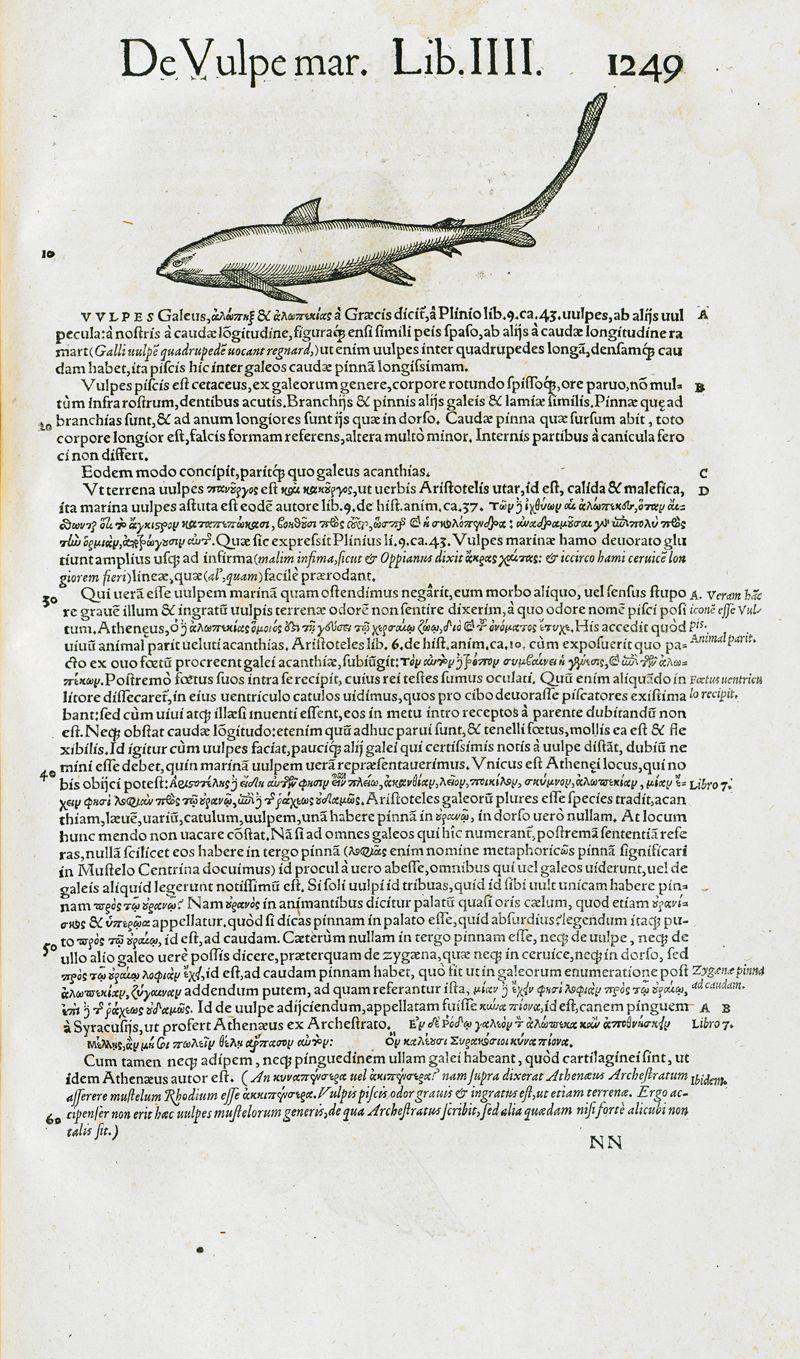 De Vulpe mar. Lib. IIII. 1249
10
VVLPES Galeus, ἀλώπηξ & ἀλωπεκίας à Græcis dicit̃, à Plinio lib.9.ca.43.uulpes, ab alijs uul A
pecula: à nostris à caudæ lõgitudine, figuraq́; ensi simili peis spaso, ab alijs à caudæ longitudine ra
mart (Galli uulpẽ quadrupedẽ uocant regnard,) ut enim uulpes inter quadrupedes longã, densamq́; cau
dam habet, ita piscis hic inter galeos caudæ pinnã longissimam.
Vulpes piscis est cetaceus, ex galeorum genere, corpore rotundo spissoq́;, ore paruo, nõ mul= B
tùm infra rostrum, dentibus acutis. Branchijs & pinnis alijs galeis & lamiæ similis. Pinnæ quę ad
20 branchias sunt, & ad anum longiores sunt ijs quæ in dorso. Caudæ pinna quæ sursum abit, toto
corpore longior est, falcis formam referens, altera multò minor. Internis partibus à canicula fero
ci non differt.
Eodem modo concipit, paritq́; quo galeus acanthias. C
Vt terrena uulpes πανοῦργος est καὶ κακοῦργος, ut uerbis Aristotelis utar, id est, calida & malefica, D
ita marina uulpes astuta est eodẽ autore lib.9.de hist.anim.ca.37. Τῶν ἰχθύων
ἄγκιστρον καταπεπώκασι, βοηθοῦσι ἡ σκολόπενδρα:
Quæ sic expressit Plinius li.9.ca.43. Vulpes marinæ hamo deuorato glu
tiunt amplius usq́; ad infirma (malim infima, sicut & Oppianus dixit ἄκρας : & iccirco hami ceruicẽ lon
giorem fieri) lineæ, quæ (al', quam) facilè prærodant.
30 Qui uerã esse uulpem marinã quam ostendimus negârit, eum morbo aliquo, uel sensus stupo A. Veram hãc
re grauẽ illum & ingratũ uulpis terrenæ odorẽ non sentire dixerim, à quo odore nomẽ pisci posi iconẽ esse Vul
tum. Athenęus, Ὁ ἀλωπεκίας ὅμοιος τῇ γεύσει τῷ χερσαίῳ ζώῳ, διὸ ὀνόματος ἔτυχε. His accedit quòd pis.
uiuũ animal parit ueluti acanthias. Aristoteles lib. 6.de hist.anim.ca.10. cùm exposuerit quo pa= Animal parit.
cto ex ouo fœtũ procreent galei acanthiæ, subiũgit: Τὸν τρόπον συμβαίνει γένεσις, ἀλω=
πέκων. Postremò fœtus suos intra se recipit, cuius rei testes sumus oculati. Quũ enim aliquãdo in Fœtus uentricu
litore dissecaret̃, in eius uentriculo catulos uidimus, quos pro cibo deuorasse piscatores existima lo recipit.
bant: sed cùm uiui atq́; illæsi inuenti essent, eos in metu intro receptos à parente dubitandũ non
est. Neq́; obstat caudæ lõgitudo: etenim quũ adhuc parui sunt, & tenelli fœtus, mollis ea est & fle
xibilis. Id igitur cùm uulpes faciat, pauciq́; alij galei qui certissimis notis à uulpe distãt, dubiũ ne
40 mini esse debet, quin marinã uulpem uerã repræsentauerimus. Vnicus est Athenęi locus, qui no
bis obijci potest: Ἀριστοτέλης εἴδη φησιν πλείω, ἀκανθίαν, λεῖον, ποικίλον, σκύμνον, ἀλωπεκίαν, Libro 7.
φησὶ πρὸς τῷ οὐρανῷ, Aristoteles galeorũ plures esse species tradit, acan
thiam, læuẽ, uariũ, catulum, uulpem, unã habere pinnã in οὐρανῷ, in dorso uerò nullam. At locum
hunc mendo non uacare cõstat. Nã si ad omnes galeos qui hîc numerant̃, postremã sententiã refe
ras, nullã scilicet eos habere in tergo pinnã (λοφιᾶς enim nomine metaphoricῶs pinnã significari
in Mustelo Centrina docuimus) id procul à uero abesse, omnibus qui uel galeos uiderunt, uel de
galeis aliquid legerunt notissimũ est. Si soli uulpi id tribuas, quid id sibi uult unicam habere pin=
nam πρὸς τῷ οὐρανῷ? Nam οὐρανὸς in animantibus dicitur palatũ quasi oris cælum, quod etiam οὐρανί=
σκος & ὑπερῴα appellatur. quòd si dicas pinnam in palato esse, quid absurdius? legendum itaq́; pu=
50 to πρὸς τῷ οὐραίῳ, id est, ad caudam. Cæterùm nullam in tergo pinnam esse, neq́; de uulpe, neq́; de
ullo alio galeo uerè possis dicere, præterquam de zygæna, quæ neq́; in ceruice, neq́; in dorso, sed
πρὸς τῷ οὐραίῳ λοφιὰν ἔχει, id est, ad caudam pinnam habet, quo fit ut in galeorum enumeratione post Zygænæ pinna
ἀλωπεκίαν, ζύγαιναν addendum putem, ad quam referantur ista, μίαν ἔχειν φησὶ λοφιὰν πρὸς τῷ οὐραίῳ, ad caudam.
ῥάχεως οὐδαμῶς. Id de uulpe adijciendum, appellatam fuisse κύνα πίονα, id est, canem pinguem A B
à Syracusijs, ut profert Athenæus ex Archestrato. Ἐν δὲ Ῥόδῳ γαλεὸν ἀλώπεκα κἂν ἀποθνήσκειν Libro 7.
Μέλλῃς, ἂν μή σοι πωλεῖν θέλῃ ἅρπασον αὐτόν: Ὃν καλέουσι Συρακόσιοι κύνα πίονα.
Cum tamen neq́; adipem, neq́; pinguedinem ullam galei habeant, quòd cartilaginei sint, ut
idem Athenæus autor est. (An uel nam supra dixerat Athenæus Archestratum Ibidem.
asserere mustelum Rhodium esse Vulpis piscis odor grauis & ingratus est, ut etiam terrenæ. Ergo ac=
60 cipenser non erit hæc uulpes mustelorum generis, de qua Archestratus scribit, sed alia quædam nisi fortè alicubi non
talis sit.)
NN